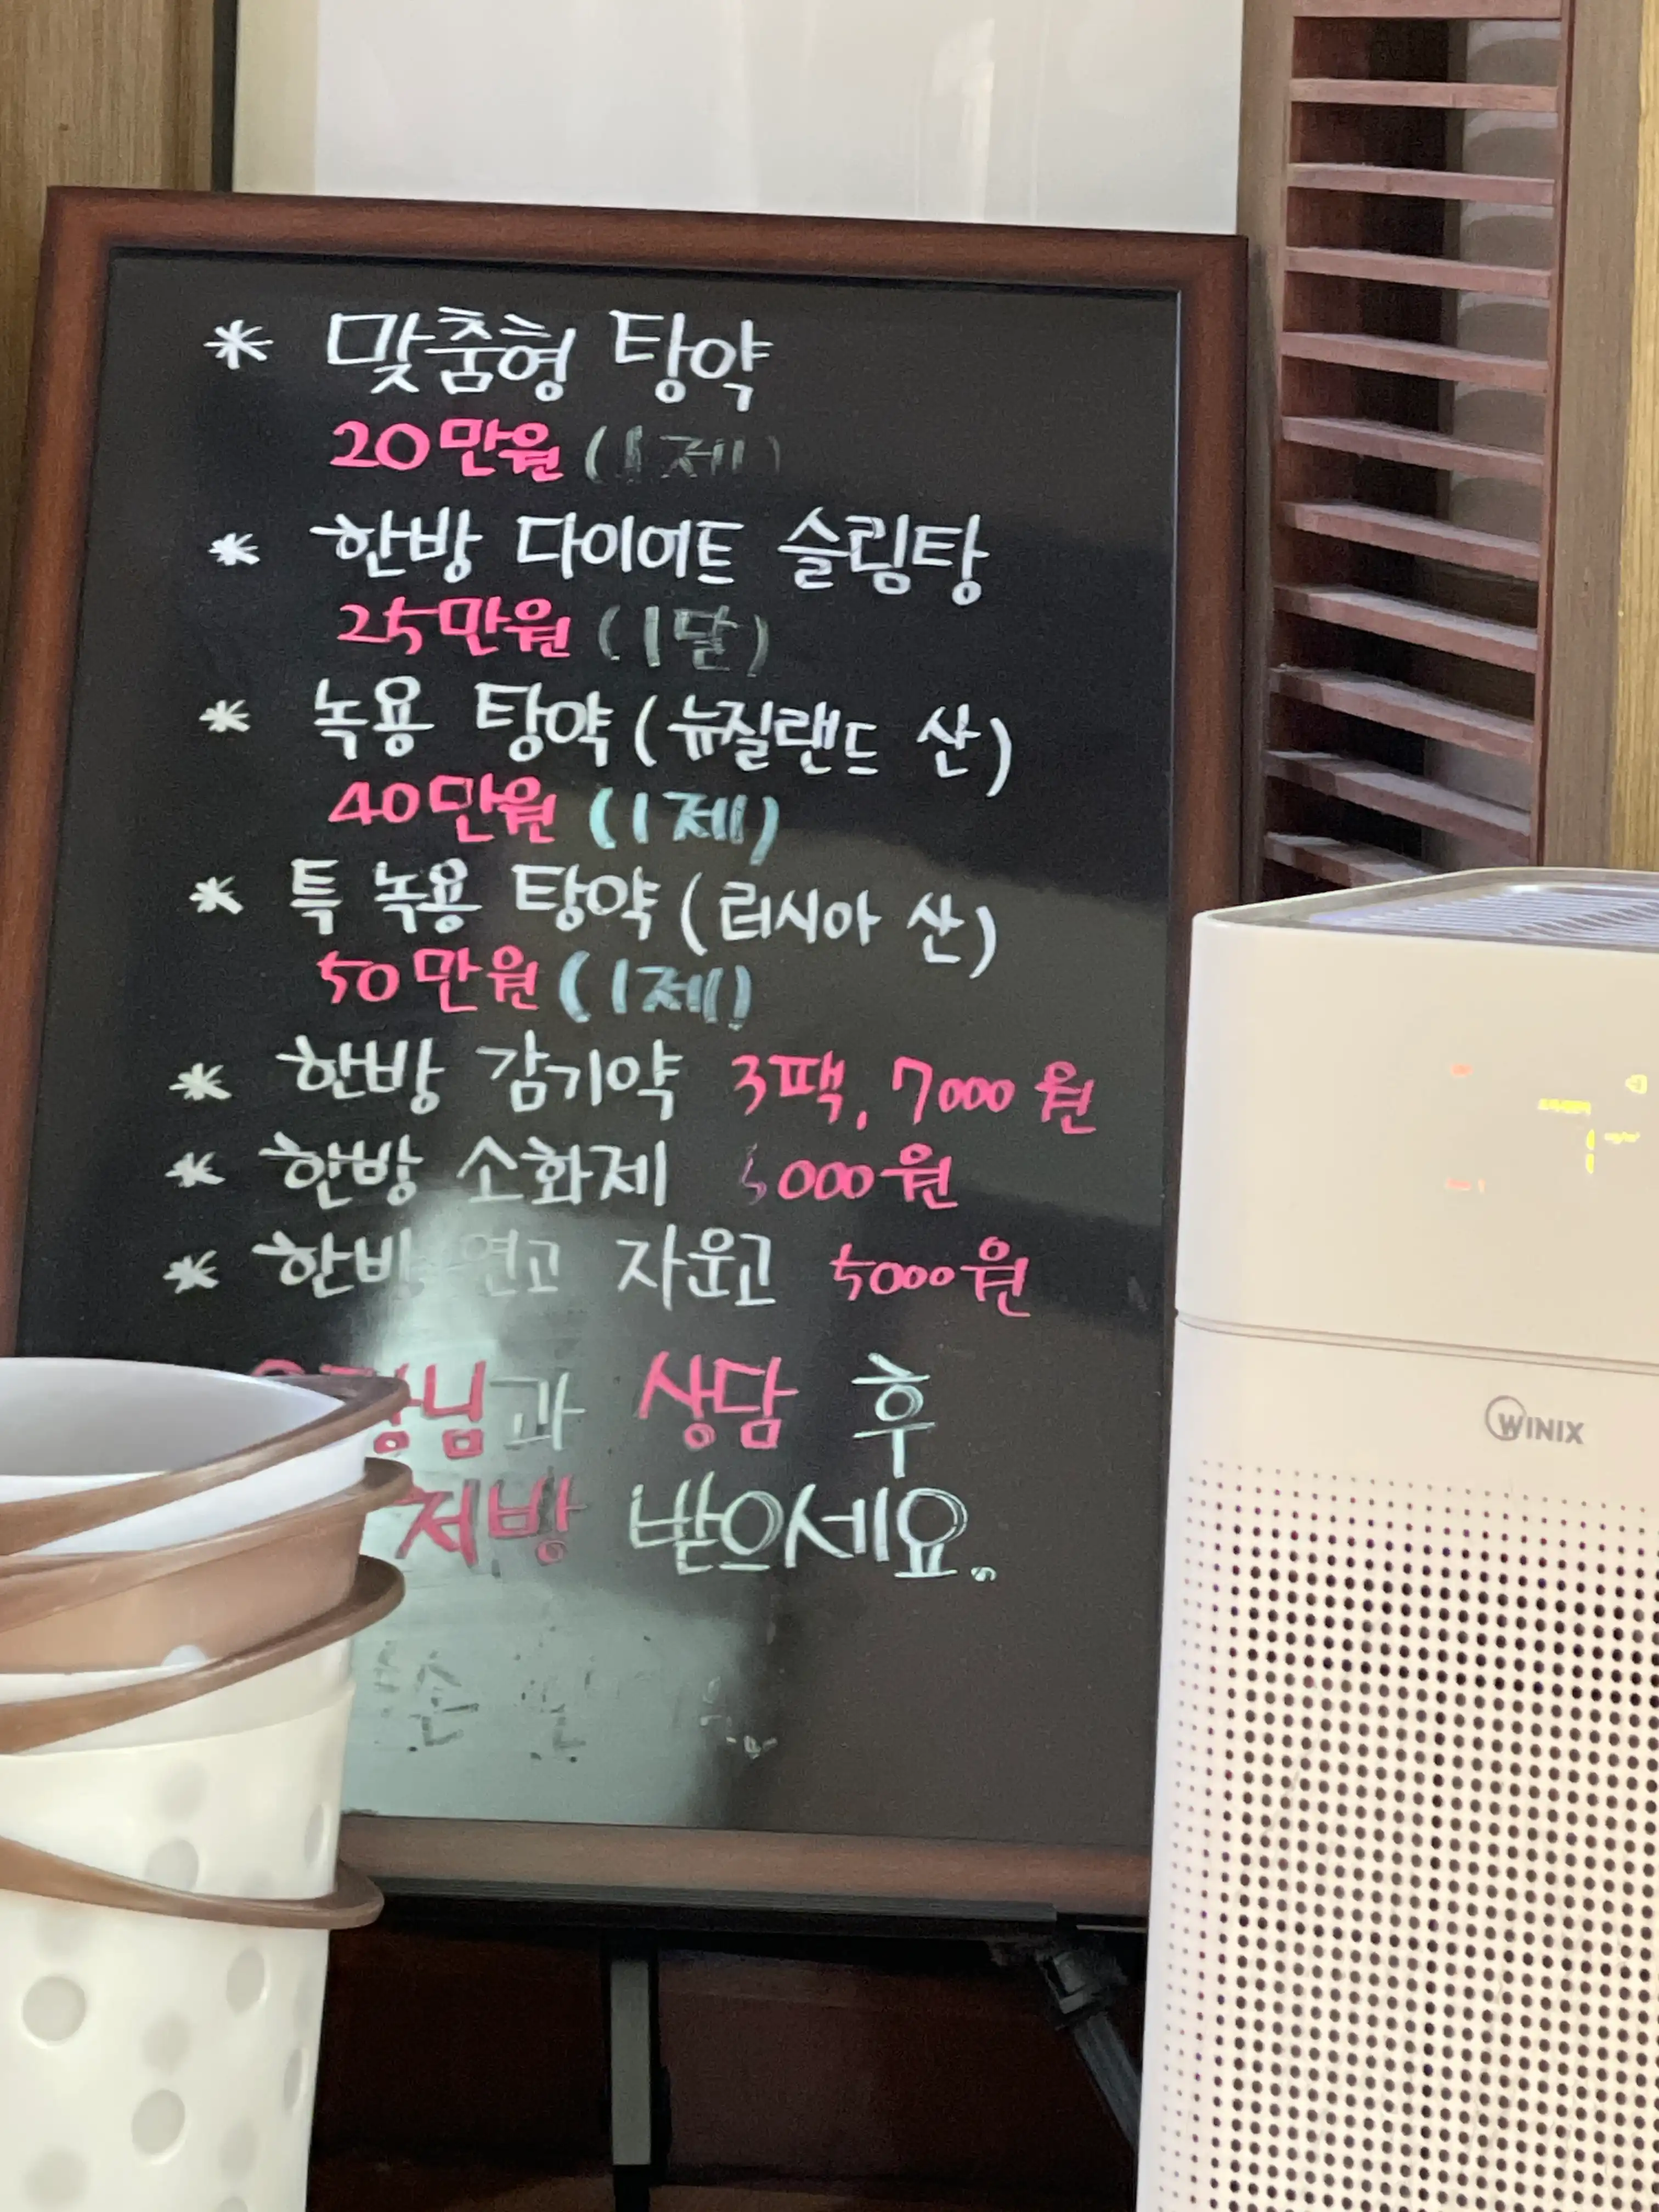 * 맞춤형 탕약
20만원 (1제)
* 한방 다이어트 슬림탕
25만원 (1달)
* 녹용 탕약 (뉴질랜드 산)
40만원 (1제)
* 특 녹용 탕약 (러시아 산)
50만원 (1제)
* 한방 감기약 3팩, 7000원
* 한방 소화제
* 한방 연고 자운고 5000원
상담 후
처방 받으세요.
WINIX